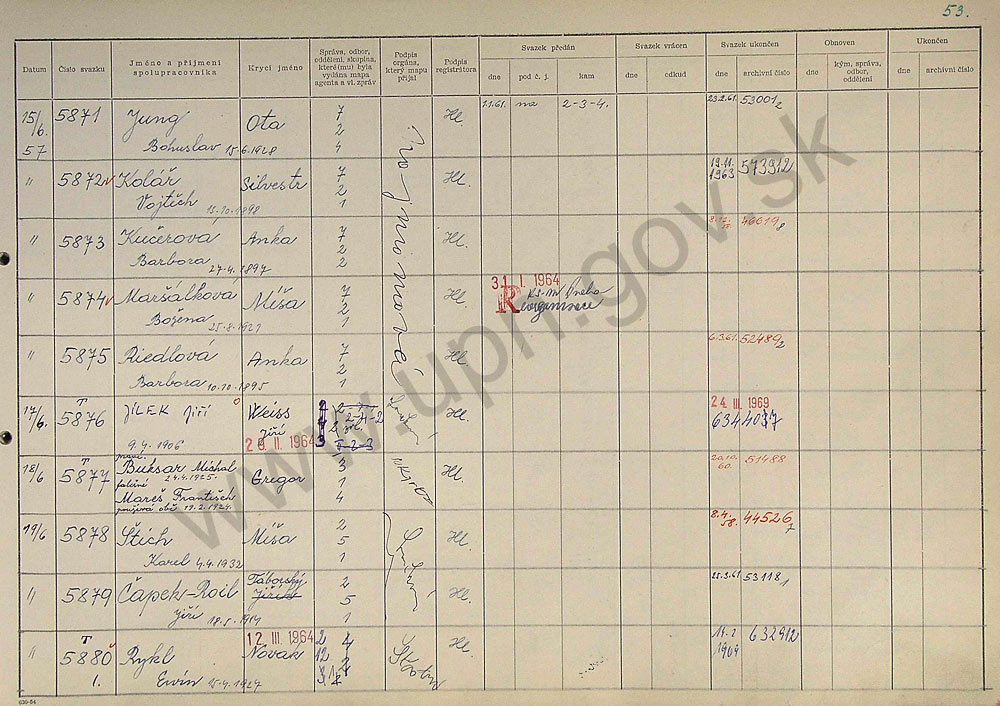 53.
Datum
Číslo svazku
Jméno a příjmení spolupracovníka
Krycí jméno
Správa, odbor, oddělení, skupina, které(mu) byla vydána mapa agenta a vl. zpráv
Podpis orgána, který mapu přijal
Podpis registrátora
Svazek předán
dne
pod č. j.
kam
Svazek vrácen
dne
odkud
Svazek ukončen
dne
archivní číslo
Obnoven
dne
kým, správa, odbor, oddělení
Ukončen
dne
archivní číslo
15/6. 57 5871 Jung Ota 7 2 4 Hl. 2-3-4. 53001 2
Bohuslav 15.6.1928
" 5872 Kolář Silvestr 7 2 1 Hl. 19.11. 1963 573912
Vojtěch 15.10.1898
" 5873 Kučerova Anka 7 2 2 Hl. 46619 8
Barbora 27.4.1897
" 5874 Maršálková Míša 7 2 1 Hl. 31. I. 1964
Božena 25.8.1921 Reorganisace
" 5875 Riedlová Anka 7 2 1 Hl. 6.3.61. 52489 2
Barbora 10.10.1895
17/6. T 5876 JÍLEK Jiří Weiss Jiří Hl. 24. III. 1969
9.4.1906 20. II. 1964 634407
18/6 T 5877 Buksar Michal Gregor 3 1 4 Hl. 20.10. 60. 51488
24.4.1925.
Mareš František
19.2.1924.
19/6 5878 Štich Míša 2 5 1 Hl. 8.4. 58. 44526 7
Karel 4.4.1932
" 5879 Čapek-Roil Táborský 2 5 1 Hl. 25.3.61 53118 1
Jiří
" T 5880 Rykl 12. III. 1964 Novák Hl. 632912
1. Ervín
www.upn.gov.sk